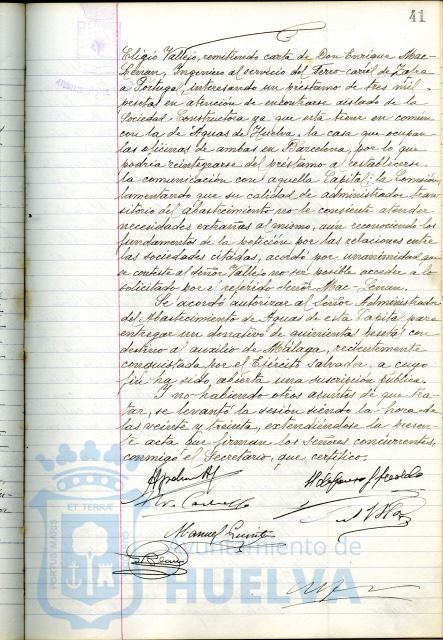 41
Eligio Vallejo, remitiendo carta de Don Enrique Mac-
Lenan, Ingeniero al servicio del Ferro-carril de Zafra
a Portugal, interesando un préstamo de tres mil
pesetas en atención de encontrarse aislado de la
Sociedad Constructora ya que esta tiene en comun
con la de Aguas de Huelva, la casa que ocupan
las oficinas de ambas en Barcelona, por lo que
podria reintegrarse del préstamo a restablecerse
la comunicación con aquella Capital; la Comisión
lamentando que su calidad de administrador tran-
sitorio del abastecimiento no le consiente atender
necesidades extrañas al mismo, aun reconociendo los
fundamentos de la petición por las relaciones entre
las sociedades citadas, acordó por unanimidad que
se conteste al Señor Vallejo no ser posible acceder a lo
solicitado por el referido Señor Mac-Lenan.
Se acordó autorizar al Señor Administrador
del Abastecimiento de Aguas de esta Capital para
entregar un donativo de quinientas pesetas con
destino a auxilio de Málaga, recientemente
conquistada por el Ejército Salvador, a cuyo
fin ha sido abierta una suscripción pública.
Y no habiendo otros asuntos de que tra-
tar, se levantó la sesión siendo la hora de
las veinte y treinta, extendiéndose la presen-
te acta que firman los Señores concurrentes,
conmigo el Secretario, que certifico.
Manuel
ET TERRÆ
PORTUS MARIS
Ayuntamiento de
HUELVA